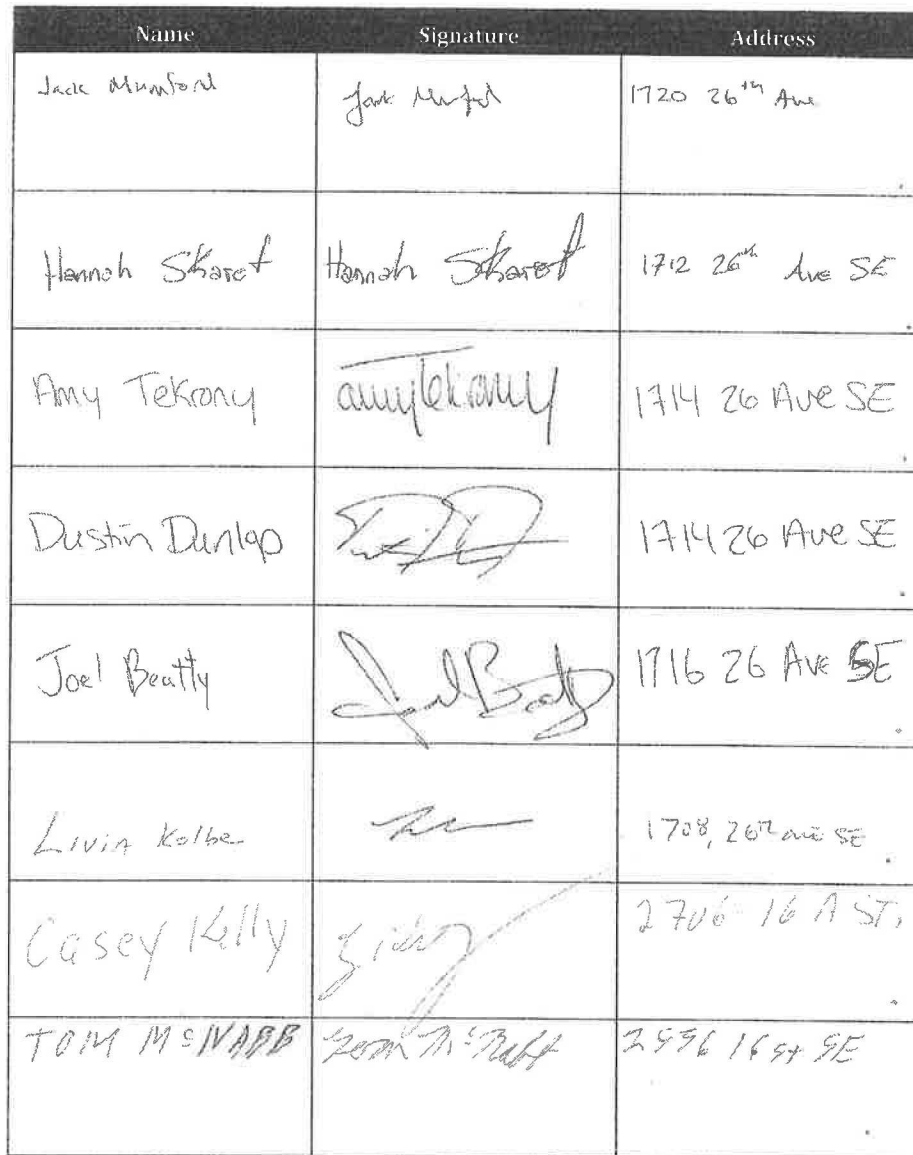 Name Signature Address
Jack Mumford 1720 26th Ave
Hannah Skarot Hannah Skarot 1712 26th Ave SE
Amy Tekrony amy tekrony 1714 26 Ave SE
Dustin Dunlap 1714 26 Ave SE
Joel Beatty Joel Beatty 1716 26 Ave SE
Livia Kolbe 1708, 26th ave SE
Casey Kelly 2706 16 A ST.
TOM McNABB Tom McNabb 16 St SE